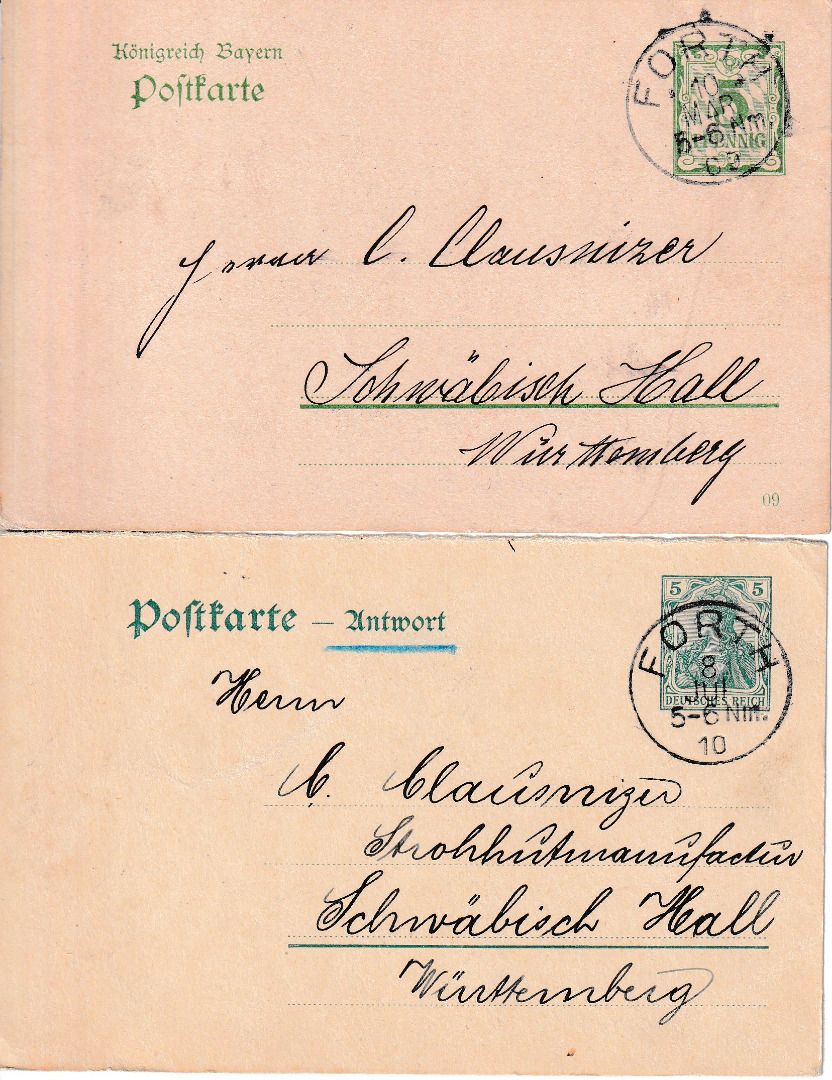 Königreich Bayern
Postkarte
FORTH
10
MAR
5-6 Nm.
09
5
PFENNIG
Herrn C. Clausnizer
Schwäbisch Hall
Württemberg
09
Postkarte — Antwort
5 5
DEUTSCHES REICH
FORTH
8
JUL
5-6 Nm.
10
Herrn
C. Clausnizer
Strohhutmanufactur
Schwäbisch Hall
Württemberg